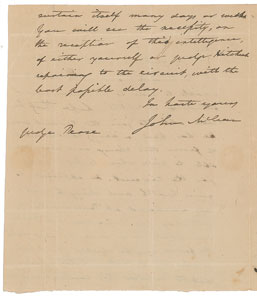 sustain itself many days or weeks.
You will see the necessity, on
the reception of this intelligence,
of either yourself or judge Hitchcock
repairing to the circuit with the
least possible delay.
In haste yours
John McLean
judge Pease